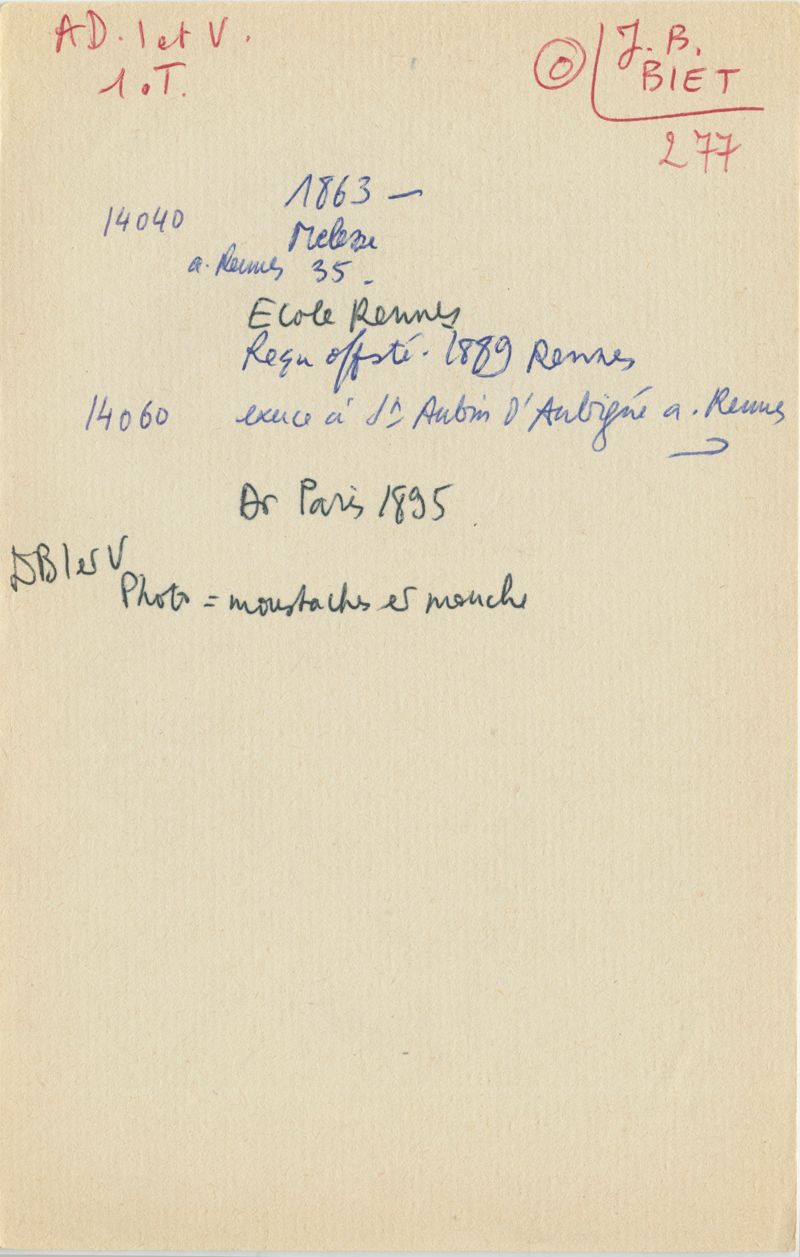 AD. I et V.
1.T.
J. B.
BIET
277
1863 —
14040
Melesse
a. Rennes 35.
Ecole Rennes
Reçu offsté. 1889 Rennes
14060 exerce à St Aubin D'Aubigné a. Rennes
→
Dr Paris 1895
DB I et V
Photo = moustaches et mouche